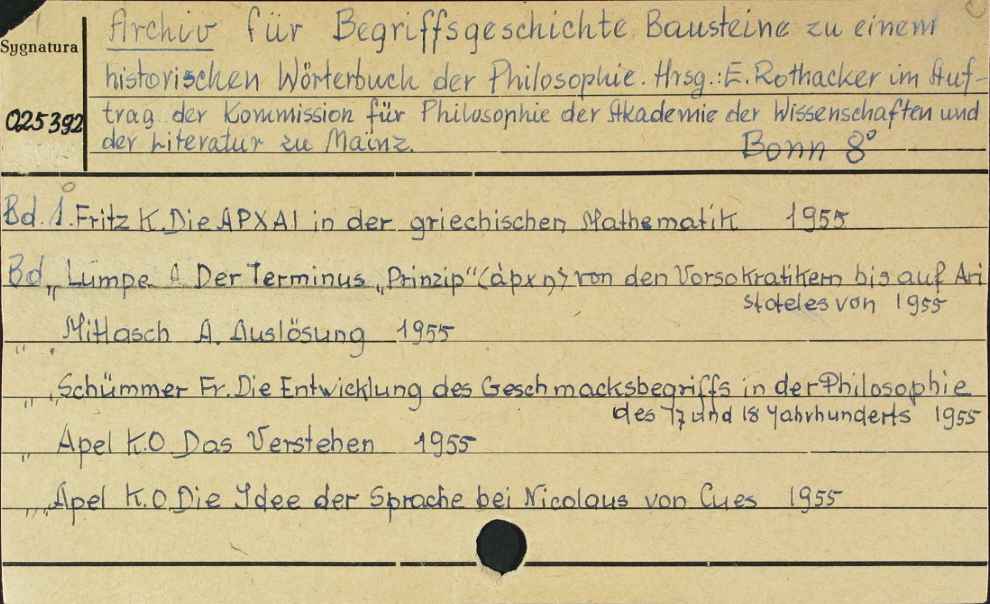 Archiv für Begriffsgeschichte Bausteine zu einem
Sygnatura
historischen Wörterbuch der Philosophie. Hrsg.: E. Rothacker im Auf-
025392
trag der Kommission für Philosophie der Akademie der Wissenschaften und
der Literatur zu Mainz. Bonn 8°
Bd. 1. Fritz K. Die APXAI in der griechischen Mathematik 1955
Bd „ Lumpe A Der Terminus „Prinzip“ (ἀρχη) von den Vorsokratikern bis auf Ari
stoteles von 1955
„ Mittasch A. Auslösung 1955
„ Schümmer Fr. Die Entwicklung des Geschmacksbegriffs in der Philosophie
des 17 und 18 Jahrhunderts 1955
„ Apel K.O Das Verstehen 1955
„ Apel K.O. Die Idee der Sprache bei Nicolaus von Cues 1955